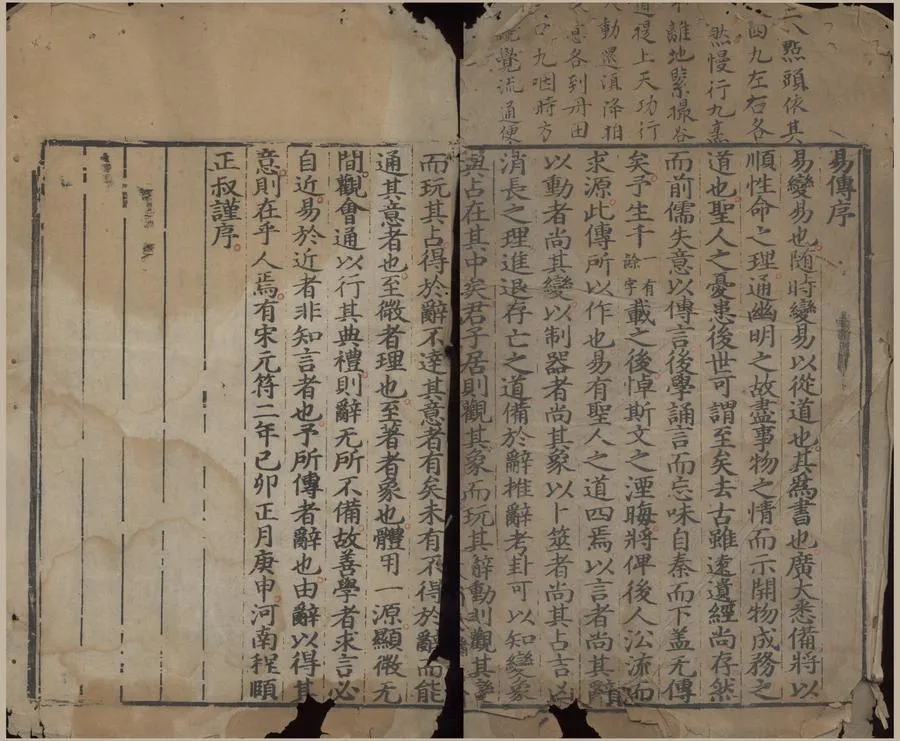 二八點頭依其
四九左右各
然慢行九
不離地緊撮谷
道提上天功行
人動還須降相
意各到丹田
九咽時方
覺流通便
易傳序
易變易也随時變易以從道也其為書也廣大悉備將以
順性命之理通幽明之故盡事物之情而示開物成務之
道也聖人之憂患後世可謂至矣去古雖遠遺經尚存然
而前儒失意以傳言後學誦言而忘味自秦而下盖无傳
矣予生千一有餘字載之後悼斯文之湮晦將俾後人㳂流而
求源此傳所以作也易有聖人之道四焉以言者尚其辭
以動者尚其變以制器者尚其象以卜筮者尚其占吉凶
消長之理進退存亡之道備於辭推辭考卦可以知變象
與占在其中矣君子居則觀其象而玩其辭動則觀其變
而玩其占得於辭不達其意者有矣未有不得於辭而能
通其意者也至微者理也至著者象也體用一源顯微无
間觀會通以行其典禮則辭无所不備故善學者求言必
自近易於近者非知言者也予所傳者辭也由辭以得其
意則在乎人焉有宋元符二年己卯正月庚申河南程頤
正叔謹序